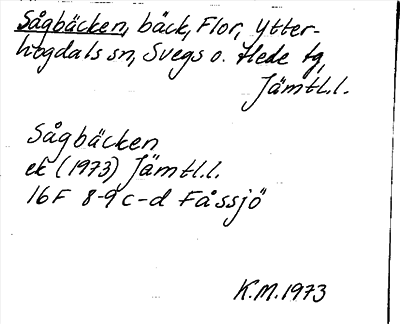 Sågbäcken, bäck, Flor, Ytter-
hogdals sn, Svegs o. Hede tg,
Jämtl.l.
Sågbäcken
ek (1973) Jämtl.l.
16F 8-9 c-d Fåssjö
K.M. 1973